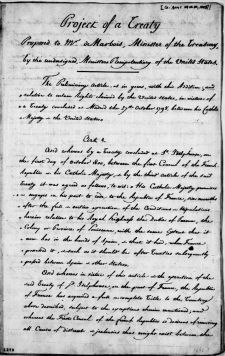 Project of a Treaty
Proposed to Mr. de Marbois, Minister of the Treasury,
by the undersigned, Ministers Plenipotentiary of the United States.
The Preliminary article, as given, with this Addition, and
relative to certain Rights claimed by the United States, in virtue of
a Treaty concluded at Madrid the 27th October 1795 between his Catholic
Majesty & the United States
And whereas by a Treaty concluded at St. Ildephonso, on
the first day of October 1800, between the first Consul of the French
Republic & his Catholic Majesty, & by the third article of the said
treaty it was agreed as follows, to wit: His Catholic Majesty promises
& engages on his part to cede to the Republic of France, six months
after the full & entire execution of the Conditions & Stipulations
herein relative to his Royal Highness the Duke of Parma, the
Colony or Province of Louisiana, with the same Extent that it
now has in the hands of Spain, & that it had when France
possessed it, & such as it should be after Treaties subsequently
passed between Spain & other States.
And whereas in virtue of this article & the operation of the
said Treaty of St. Ildephonso, on the part of France, the Republic
of France has acquired a full & complete Title to the Territory
above described, subject to the exceptions therein mentioned, and
whereas the First Consul of the French Republic is desirous of removing
all Cause of distrust & jealousies that might exist between the